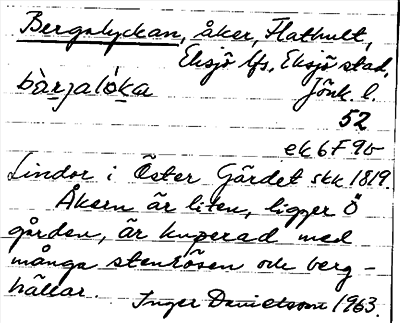 Bergslyckan, åker, Flathult,
Eksjö lfs, Eksjö stad,
bàrjalóka Jönk. l.
52
ek 6F 9b
Lindor i Öster Gärdet skk 1819.
Åkern är liten, ligger Ö
gården, är kuperad med
många stenrösen och berg-
hällar. Inger Danielsson 1963.